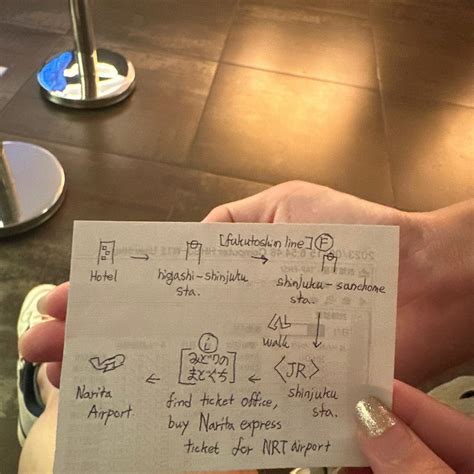 [fukutoshin line] F
Hotel
higashi-shinjuku
sta.
shinjuku-sanchome
sta.
walk
JR
shinjuku
sta.
i
みどりの
まどぐち
find ticket office,
buy Narita express
ticket for NRT airport
Narita
Airport